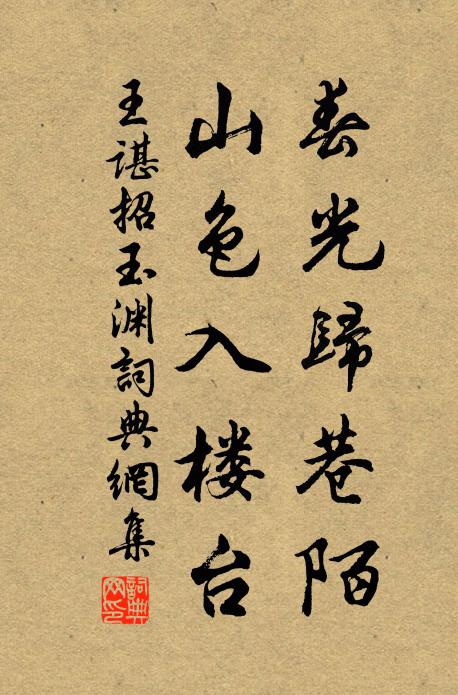 春光歸巷陌
山色入楼台
王諶招玉渊詞典網集
詞典網印